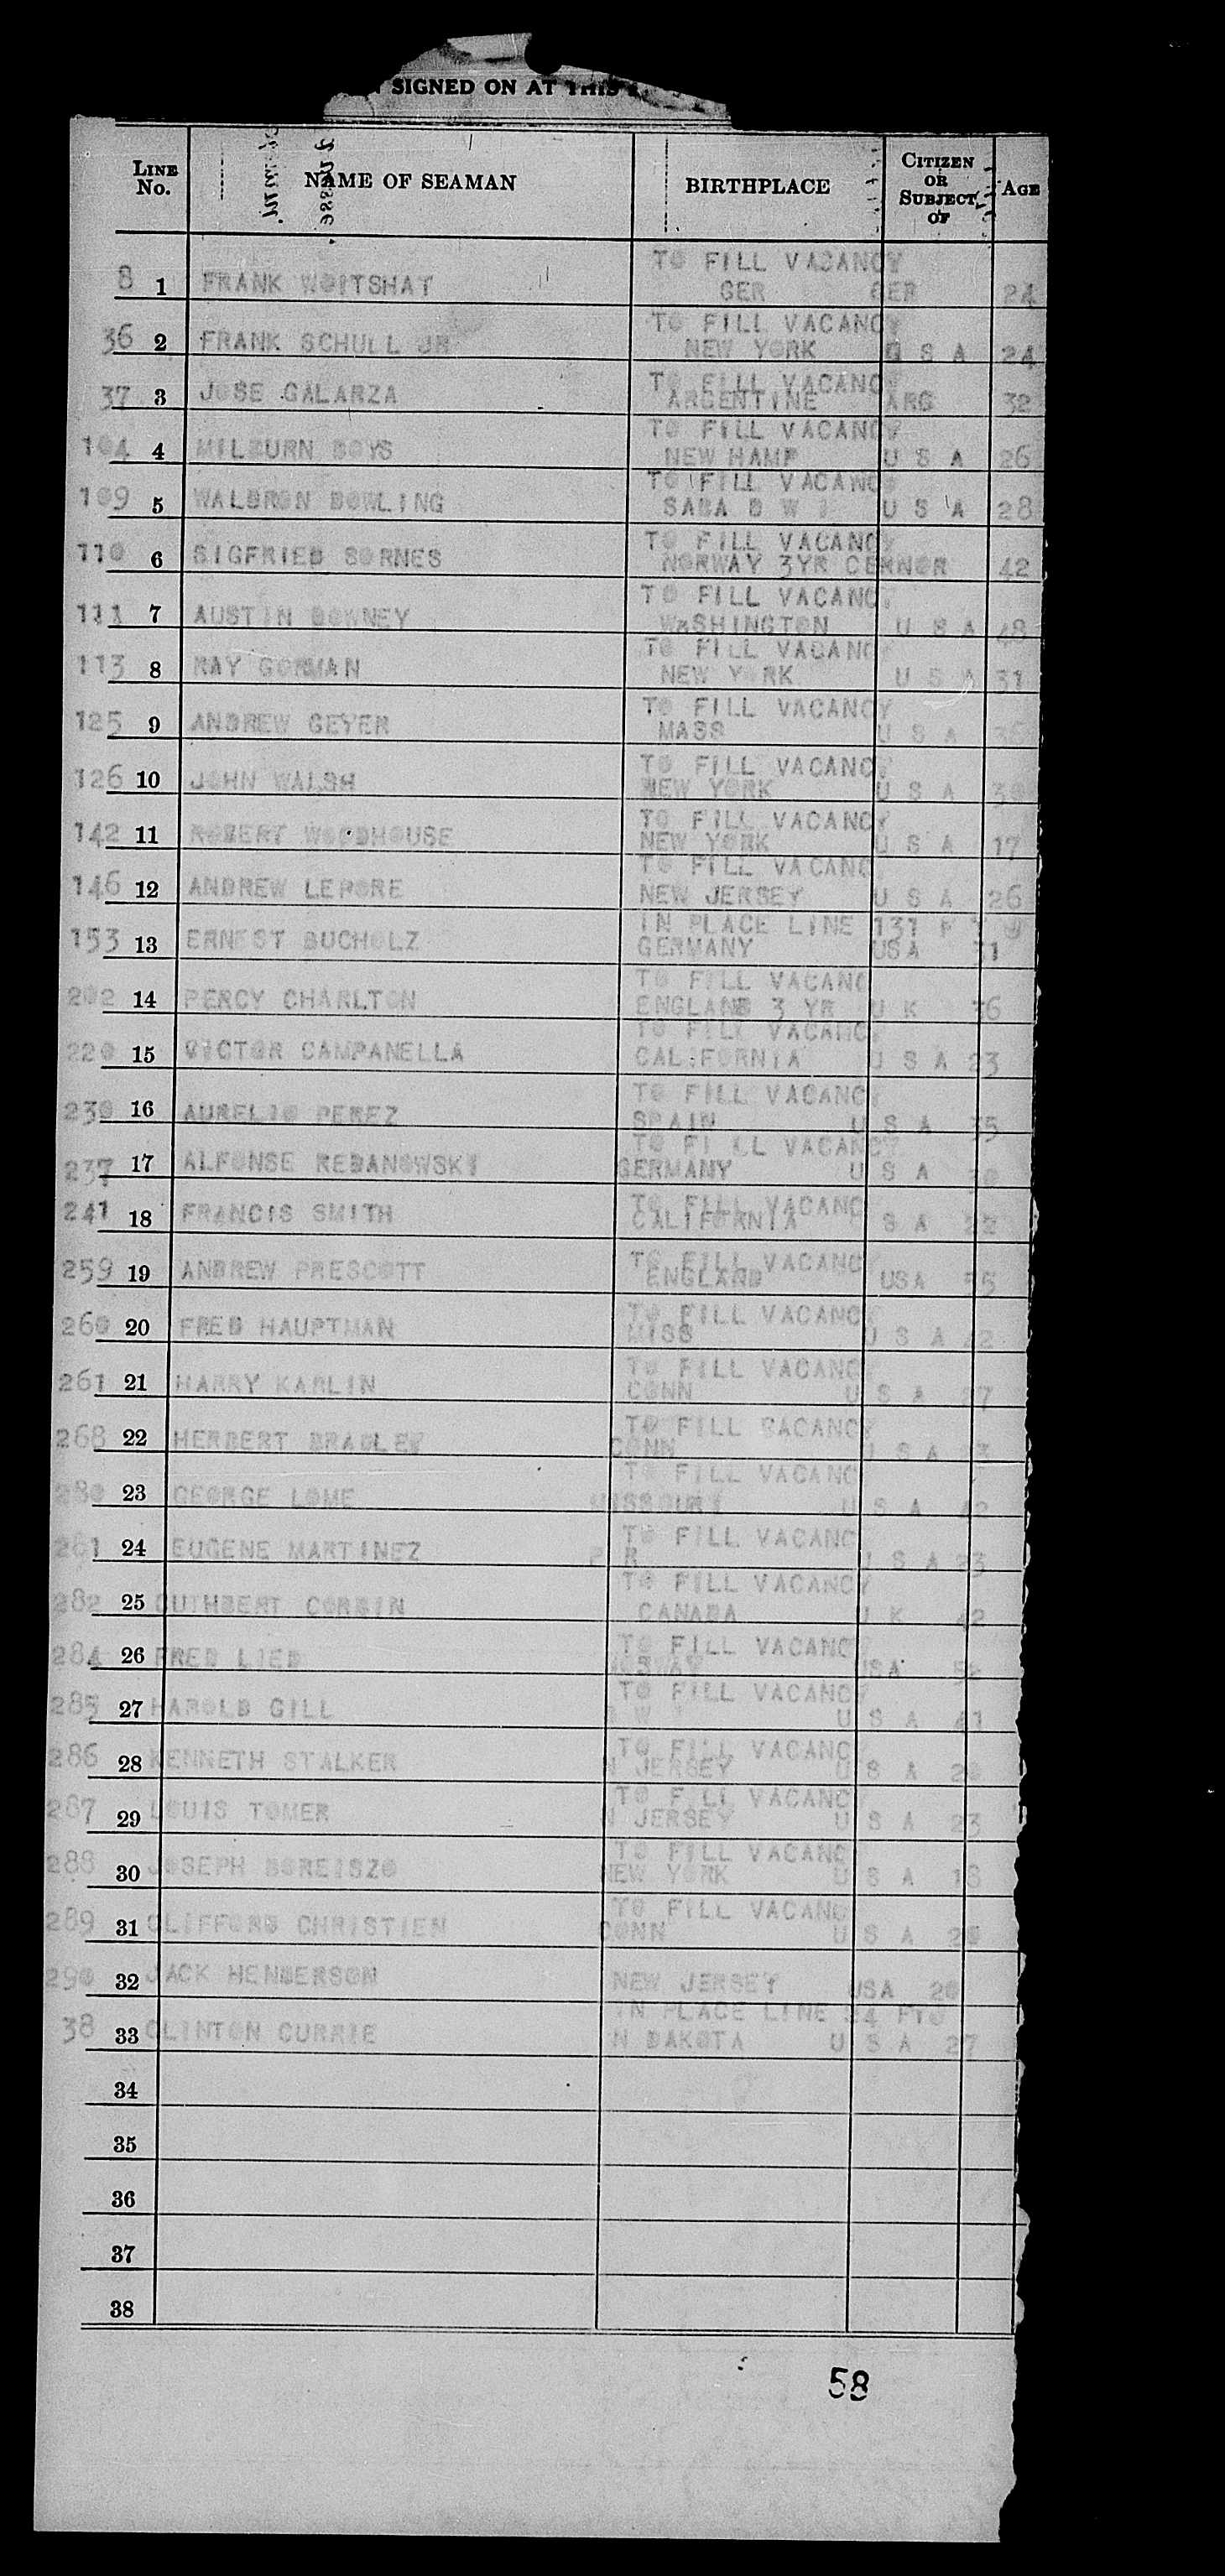 SIGNED ON AT THIS
LINE No. NAME OF SEAMAN BIRTHPLACE CITIZEN OR SUBJECT OF AGE
TO FILL VACANCY
8 1 FRANK WOITSHAT GER GER 24
TO FILL VACANCY
36 2 FRANK SCHULL JR NEW YORK U S A 24
TO FILL VACANCY
37 3 JOSE GALARZA ARGENTINE ARG 32
TO FILL VACANCY
104 4 MILBURN BOYS NEW HAMP U S A 26
TO FILL VACANCY
109 5 WALDRON DOWLING SABA D W I U S A 28
TO FILL VACANCY
110 6 SIGFRIED SORNES NORWAY 3YR CERNOR 42
TO FILL VACANCY
111 7 AUSTIN DOWNEY WASHINGTON U S A 48
TO FILL VACANCY
113 8 RAY GORMAN NEW YORK U S A 31
TO FILL VACANCY
125 9 ANDREW GEYER MASS U S A 36
TO FILL VACANCY
126 10 JOHN WALSH NEW YORK U S A 30
TO FILL VACANCY
142 11 ROBERT WOODHOUSE NEW YORK U S A 17
TO FILL VACANC
146 12 ANDREW LEPORE NEW JERSEY U S A 26
IN PLACE LINE 131 F T O
153 13 ERNEST BUCHOLZ GERMANY USA 31
TO FILL VACANC
202 14 PERCY CHARLTON ENGLAND 3 YR U K 36
TO FILL VACANC
220 15 VICTOR CAMPANELLA CALIFORNIA U S A 23
TO FILL VACANCY
230 16 AURELIO PEREZ SPAIN U S A 35
TO FI LL VACANCY
237 17 ALFONSE REDANOWSKI GERMANY U S A 30
TO FILL VACANC
241 18 FRANCIS SMITH CALIFORNIA S A 22
TO FILL VACANCY
259 19 ANDREW PRESCOTT ENGLAND USA 35
TO FILL VACANCY
260 20 FRED HAUPTMAN MISS U S A 42
TO FILL VACANCY
261 21 HARRY KARLIN CONN U S A 27
TO FILL BACANCY
268 22 HERBERT BRADLEY CONN U S A
TO FILL VACANC
280 23 GEORGE LOWE MISSOURI U S A 42
TO FILL VACANC
281 24 EUGENE MARTINEZ P R U S A 23
TO FILL VACANCY
282 25 CUTHBERT CORBIN CANADA U K 42
TO FILL VACANCY
284 26 FRED LIED NORWAY USA 52
TO FILL VACANCY
285 27 HAROLD GILL W U S A 41
TO FILL VACANC
286 28 KENNETH STALKER N JERSEY U S A
TO FILL VACANC
287 29 LOUIS TOMER N JERSEY U S A 23
TO FILL VACANC
288 30 JOSEPH BOREISZO NEW YORK U S A 18
TO FILL VACANC
289 31 CLIFFORD CHRISTIEN CONN U S A 20
290 32 JACK HENDERSON NEW JERSEY USA 20
IN PLACE LINE 24 FTO
38 33 CLINTON CURRIE N DAKOTA U S A 27
34
35
36
37
38
58